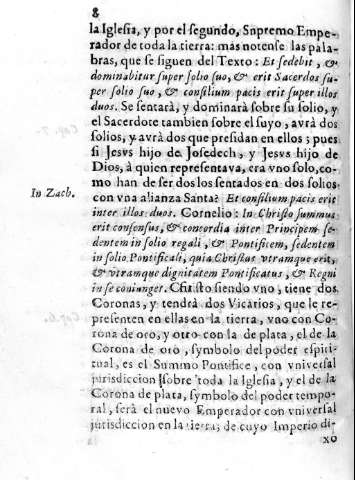 8
la Iglesia, y por el segundo, Snpremo Empe-
rador de toda la tierra: mas notense las pala-
bras, que se siguen del Texto: Et sedebit, &
dominabitur super solio suo, & erit Sacerdos su-
per solio suo, & consilium pacis erit super illos
duos. Se sentarà, y dominarà sobre su solio, y
el Sacerdote tambien sobre el suyo, avrà dos
solios, y avrà dos que presidan en ellos; pues
si Jesvs hijo de Josedech, y Jesvs hijo de
Dios, à quien representava, era vno solo, co-
mo han de ser dos los sentados en dos solios
In Zach.
con vna alianza Santa? Et consilium pacis erit
inter illos duos. Cornelio: In Christo summus
erit consensus, & concordia inter Principem se-
dentem in solio regali, & Pontificem, sedentem
in solio Pontificali, quia Christus vtramque erit,
& vtramque dignitatem Pontificatus, & Regni
in se coniunget. Christo siendo vno, tiene dos
Coronas, y tendrà dos Vicarios, que le re-
presenten en ellas en la tierra, vno con Co-
rona de oro, y otro con la de plata, el de la
Corona de oro, symbolo del poder espiri-
tual, es el Summo Pontifice, con vniversal
jurisdiccion sobre toda la Iglesia, y el de la
Corona de plata, symbolo del poder tempo-
ral, serà el nuevo Emperador con vniversal
jurisdiccion en la tierra; de cuyo Imperio di-
xo